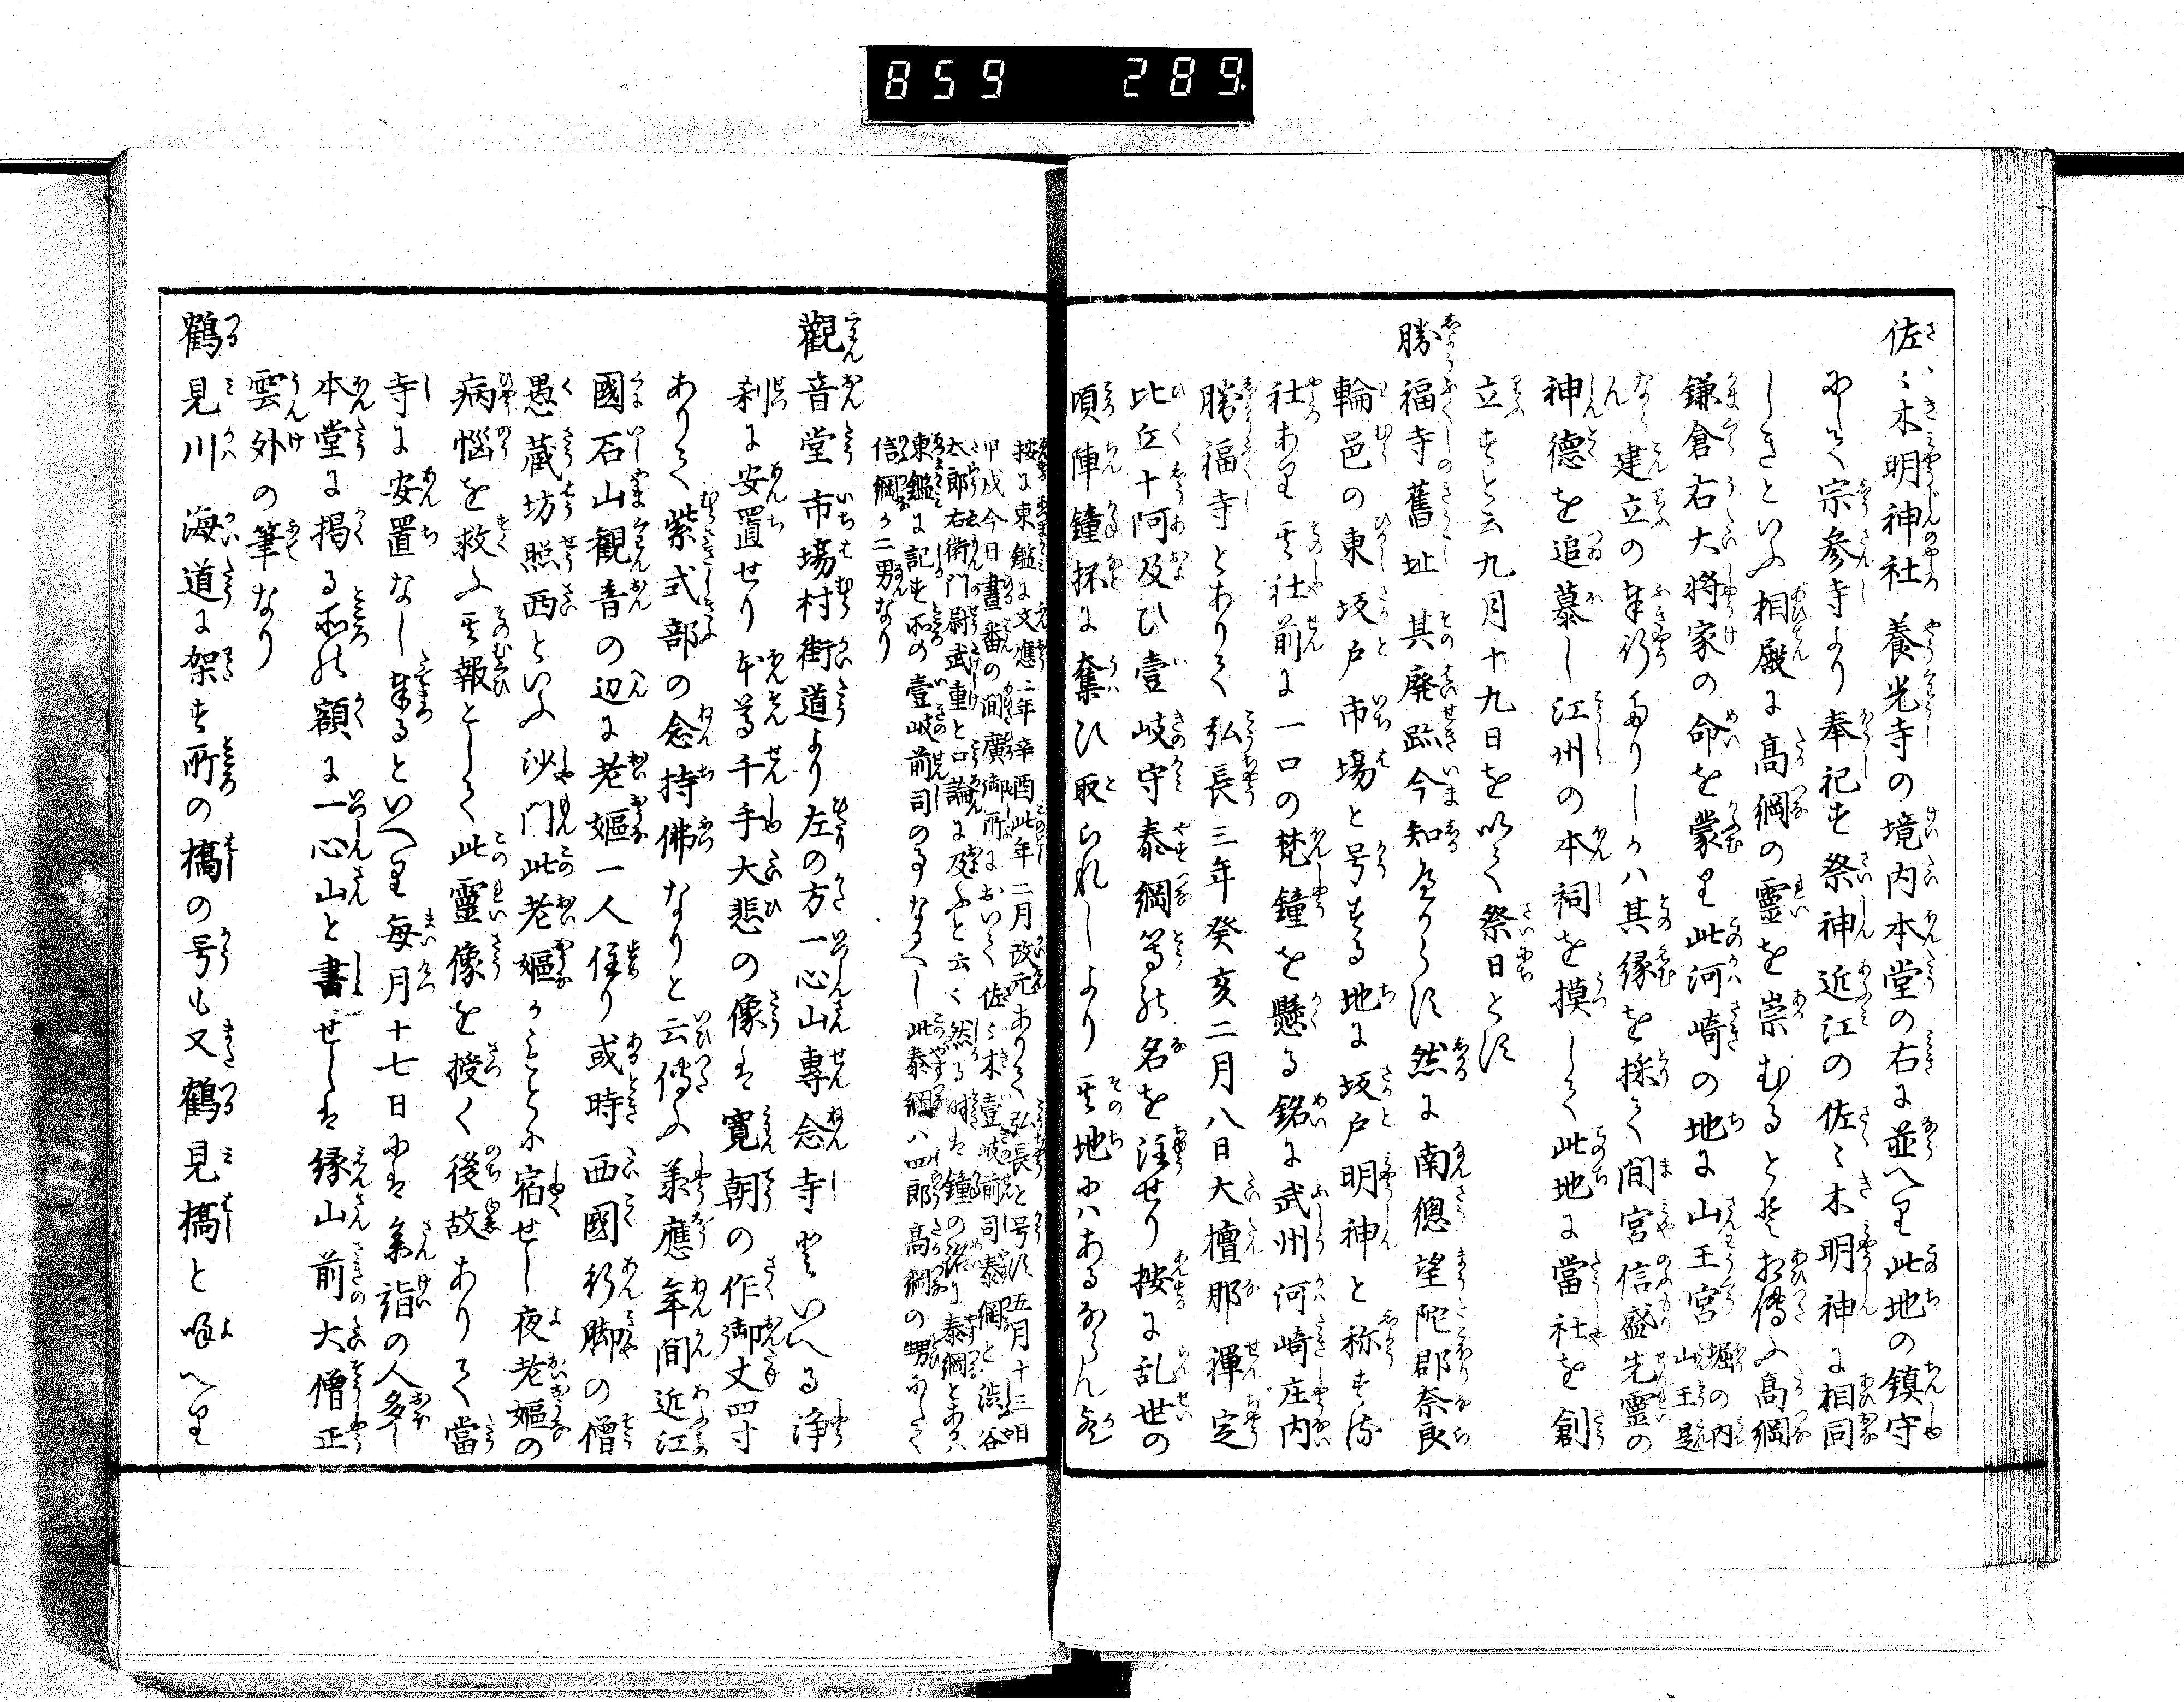 859 289
佐々木明神社 養光寺の境内本堂の右に並へり此地の鎮守
にして宗参寺より奉祀す祭神近江の佐々木明神に相同
しきといふ相殿に高綱の霊を崇むるとそ相傳ふ高綱
鎌倉右大将家の命を蒙り此河崎の地に山王宮堀の内山王是
なり建立の奉行たりしかハ其縁を採て間宮信盛先霊の
神徳を追慕し江州の本祠を摸して此地に當社を創
立すと云九月十九日を以て祭日とす
勝福寺舊址 其廃跡今知へからす然に南總望陀郡奈良
輪邑の東坂戸市場と号する地に坂戸明神と称する
社あり其社前に一口の梵鐘を懸る銘に武州河崎庄内
勝福寺とありて弘長三年癸亥二月八日大檀那禪定
比丘十阿及ひ壹岐守泰綱等の名を注せり按に乱世の
頃陣鐘抔に奪ひ取られしより其地にハあるならん歟
按に東鑑に文應二年辛酉此年二月改元ありて弘長と号す五月十三日
甲戌今日晝番の間廣御所において佐々木壹岐前司泰綱と渋谷
太郎右衛門尉武重と口論に及ふと云々然る時は鐘の銘に泰綱とあるハ
東鑑に記す所の壹岐前司の事なるへし此泰綱ハ四郎高綱の甥にして
信綱か二男なり
觀音堂 市場村街道より左の方一心山專念寺といへる浄
刹に安置せり本尊千手大悲の像は寛朝の作御丈四寸
ありて紫式部の念持佛なりと云傳ふ承應年間近江
國石山觀音の辺に老嫗一人住り或時西國行脚の僧
愚蔵坊照西といふ沙門此老嫗かもとに宿せし夜老嫗の
病惱を救ふ其報として此霊像を授く後故ありて當
寺に安置なし奉るといへり毎月十七日には参詣の人多し
本堂に掲る所の額に一心山と書せしは縁山前大僧正
雲外の筆なり
鶴見川 海道に架す所の橋の号も又鶴見橋と唱へり